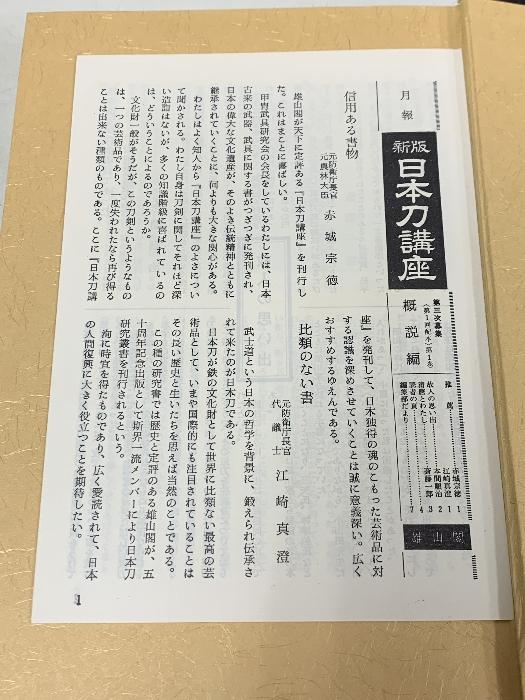 月報
新版
日本刀講座
第三次募集
(第1回配本) 第1巻
概説編
推薦
赤城宗徳 1
江崎真澄 1
故人の思い出
本間順治 2
斎藤一郎
読者の頁
編集部だより 7
雄山閣
信用ある書物
元防衛庁長官
元農林大臣
赤城宗徳
雄山閣が天下に定評ある『日本刀講座』を刊行し
た。これはまことに喜ばしい。
甲冑武具研究会の会長をしているわたしには、日本
古来の武器、武具に関する書がつぎつぎに発刊され、
日本の偉大な文化遺産が、そのよき伝統精神とともに
継承されていくことに、何よりも大きな関心がある。
わたしはよく知人から『日本刀講座』のよさについ
て聞かされる。わたし自身は刀剣に関してそれほど深
い造詣はないが、多くの知識階級に喜ばれているの
は、どういうことによるのであろうか。
文化財一般がそうだが、この刀剣というようなもの
は、一つの芸術品であり、一度失われたなら再び得る
ことは出来ない種類のものである。ここに『日本刀講
座』を発刊して、日本独得の魂のこもった芸術品に対
する認識を深めさせていくことは誠に意義深い。広く
おすすめするゆえんである。
比類のない書
元防衛庁長官
代議士
江崎真澄
武士道という日本の哲学を背景に、鍛えられ伝承さ
れて来たのが日本刀である。
日本刀が鉄の文化財として世界に比類ない最高の芸
術品として、いまや国際的にも注目されていることは
その長い歴史と生いたちを思えば当然のことである。
この種の研究書では歴史と定評のある雄山閣が、五
十周年記念出版として斯界一流メンバーにより日本刀
研究叢書を刊行されるという。
洵に時宜を得たものであり、広く愛読されて、日本
の人間復興に大きく役立つことを期待したい。
1